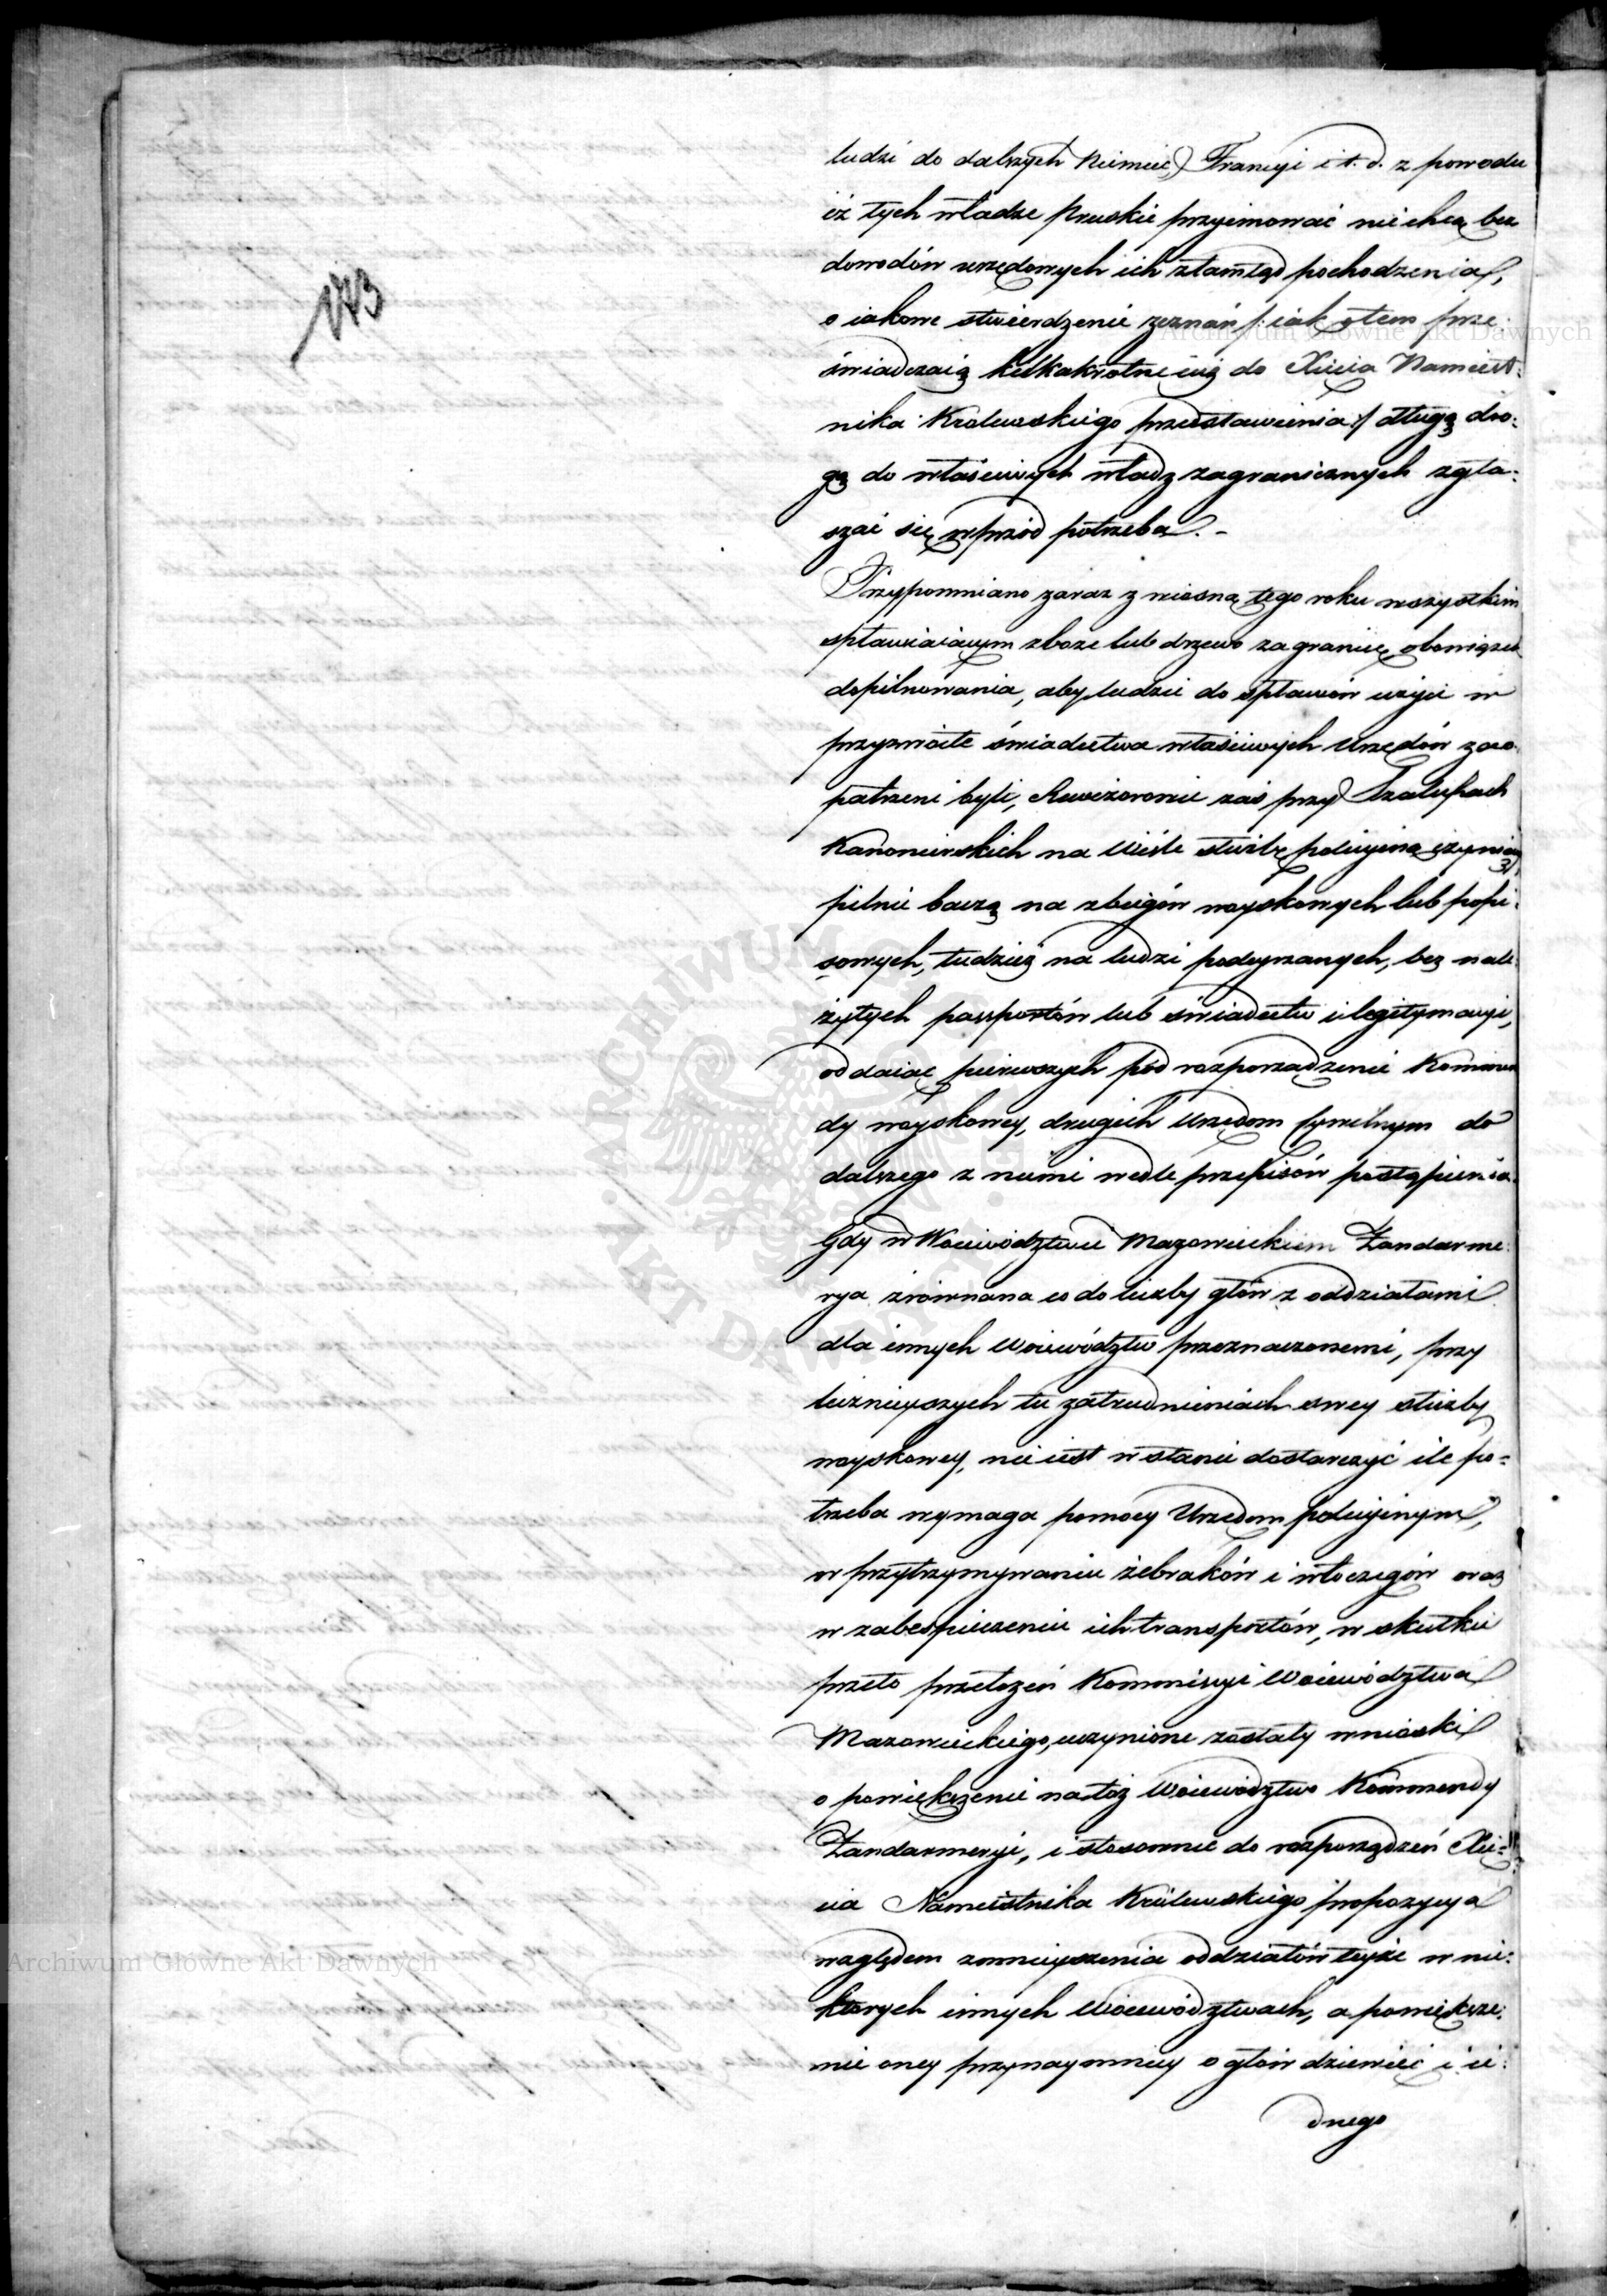 173
ludzi do dalszych Niemiec, Francyi i t. d. z powodu
iż tych władze Pruskie przyimować nie chcą bez
dowodów urzędowych ich ztamtąd pochodzenia,
o iakowe stwierdzenie zeznań /: iak o tem prze:
świadczaią kilkakrotne iuż do Xięcia Namiest:
nika Królewskiego przedstawienia :/ długą dro:
gą do właściwych władz zagranicznych zgła:
szać się wprzód potrzeba. -
Przypomniano zaraz z wiosną tego roku wszystkim
spławiaiącym zboże lub drzewo za granicę, obowiązek
dopilnowania, aby ludzie do spławów użyci w
przyzwoite świadectwa właściwych Urzędów zao:
patrzeni byli, Rewizorowie zaś przy Szalupach
Kanonierskich na Wiśle służbę policyiną czyniący,
pilnie baczą na zbiegów woyskowych lub popi:
sowych, tudzież na ludzi podeyrzanych, bez nale:
żytych passportów lub świadectw i legitymacyi,
oddaiąc pierwszych pod rozporządzenie Kommen
dy woyskowey, drugich Urzędom cywilnym do
dalszego z niemi wedle przepisów postąpienia.
Gdy w Woiewództwie Mazowieckiem Żandarme:
rya zrównana co do liczby głów z oddziałami
dla innych Woiewództw przeznaczonemi, przy
licznieyszych tu zatrudnieniach swey służby
woyskowey, nie iest w stanie dostarczyć ile po=
trzeba wymaga pomocy Urzędom policyinym,
w przytrzymywaniu żebraków i włoczęgów oraz
w zabespieczeniu ich transportów, w skutku
przeto przełożeń Kommissyi Woiewództwa
Mazowieckiego, uczynione zostały wnioski
o powiększenie na toż Woiewództwo Kommendy
Żandarmeryi, i stosownie do rozporządzeń Xię=
cia Namiestnika Królewskiego propozycya
względem zmnieyszenia oddziałów teyże w nie:
których innych Woiewództwach, a powiększe:
nie oney przynaymniey o głów dziewięć i ie:
dnego
Archiwum Główne Akt Dawnych
Archiwum Główne Akt Dawnych
ARCHIWUM GŁÓWNE · AKT DAWNYCH ·